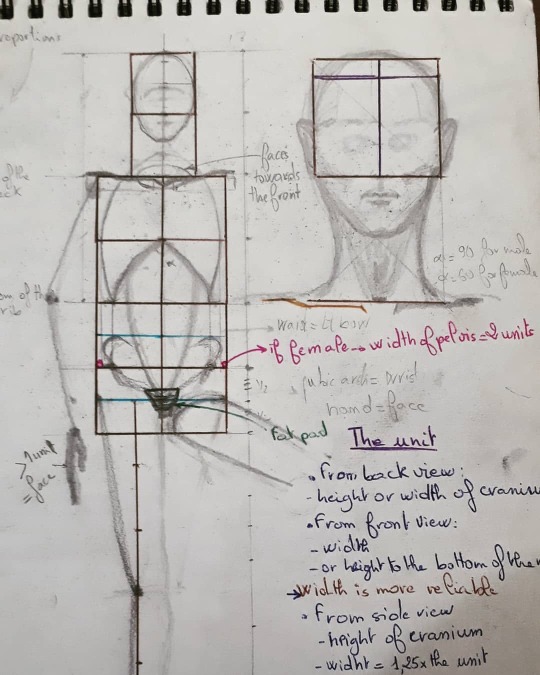 proportions
faces
towards
the front
of the
α = 90 for male
α = 60 for female
of the
waist = elbow
if female → width of pelvis = 2 units
1/2
pubic arch = wrist
hand = face
fat pad
The unit
1 unit
= face
• From back view:
- height or width of cranium
• From front view:
- width
- or height to the bottom of the
→ width is more reliable
• From side view
- height of cranium
- widht = 1,25x the unit